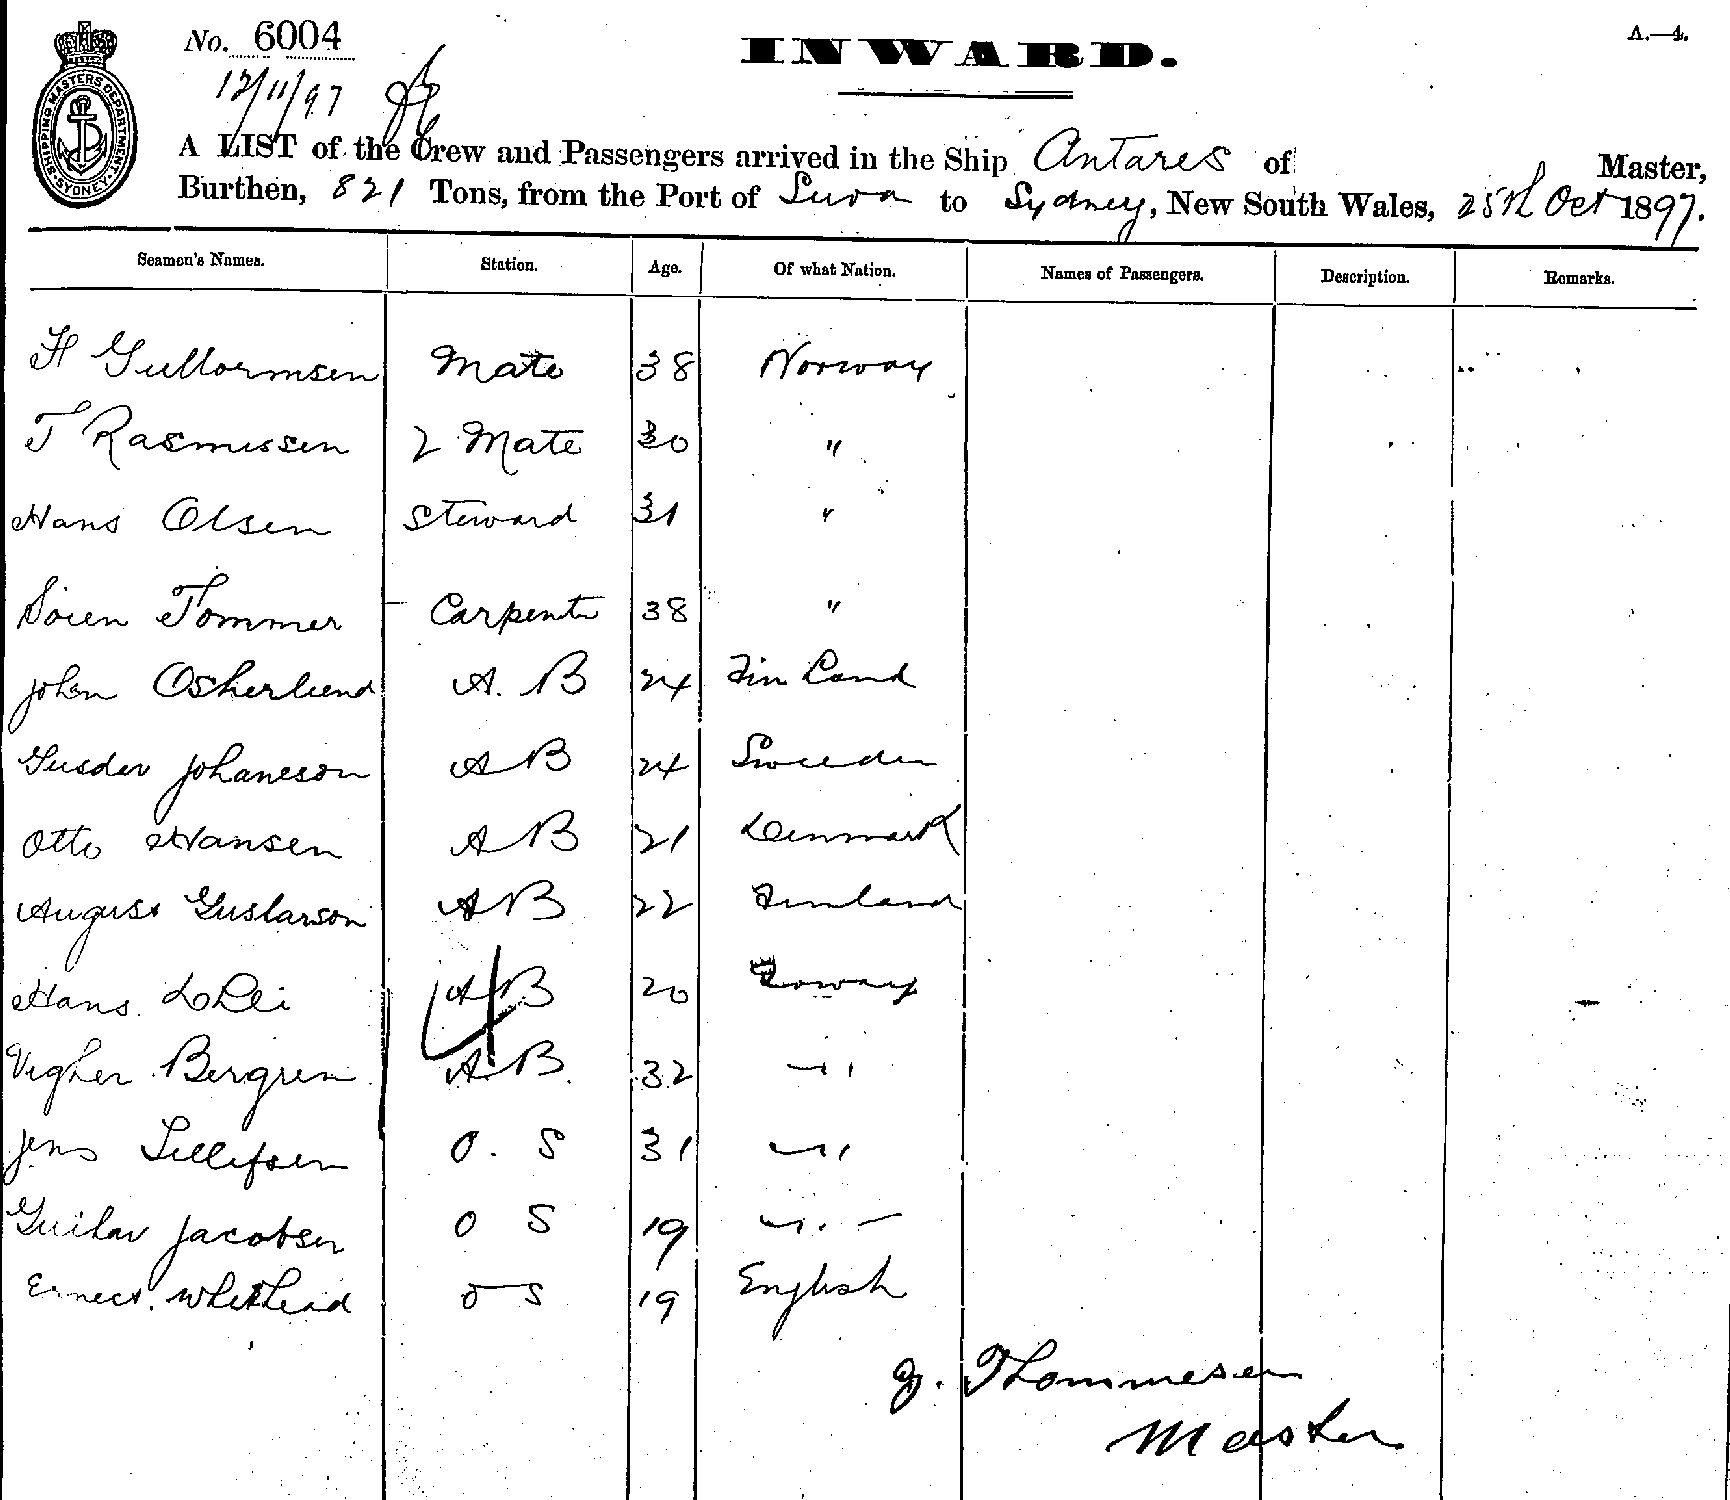 No. 6004
A.—4.
INWARD.
12/11/97
SHIPPING MASTERS DEPARTMENT SYDNEY
A LIST of the Crew and Passengers arrived in the Ship Antares of Master,
Burthen, 821 Tons, from the Port of Suva to Sydney, New South Wales, 25th Oct 1897.
Seamen's Names. Station. Age. Of what Nation. Names of Passengers. Description. Remarks.
H Gullormsen Mate 38 Norway
T Rasmussen 2 Mate 30 "
Hans Olsen Steward 31 "
Sören Tommer Carpente 38 "
John Osherlund A. B 24 Finland
Johaneson A B 24 Sweeden
Otto Hansen A B 21 Denmark
August Guslavson A B 22 Finland
Hans A B 20 Norway
Bergren A. B. 32 "
Jens O. S 31 "
Jacobsen O S 19 "
Ernest Whitehead O S 19 English
Thommesen
Master